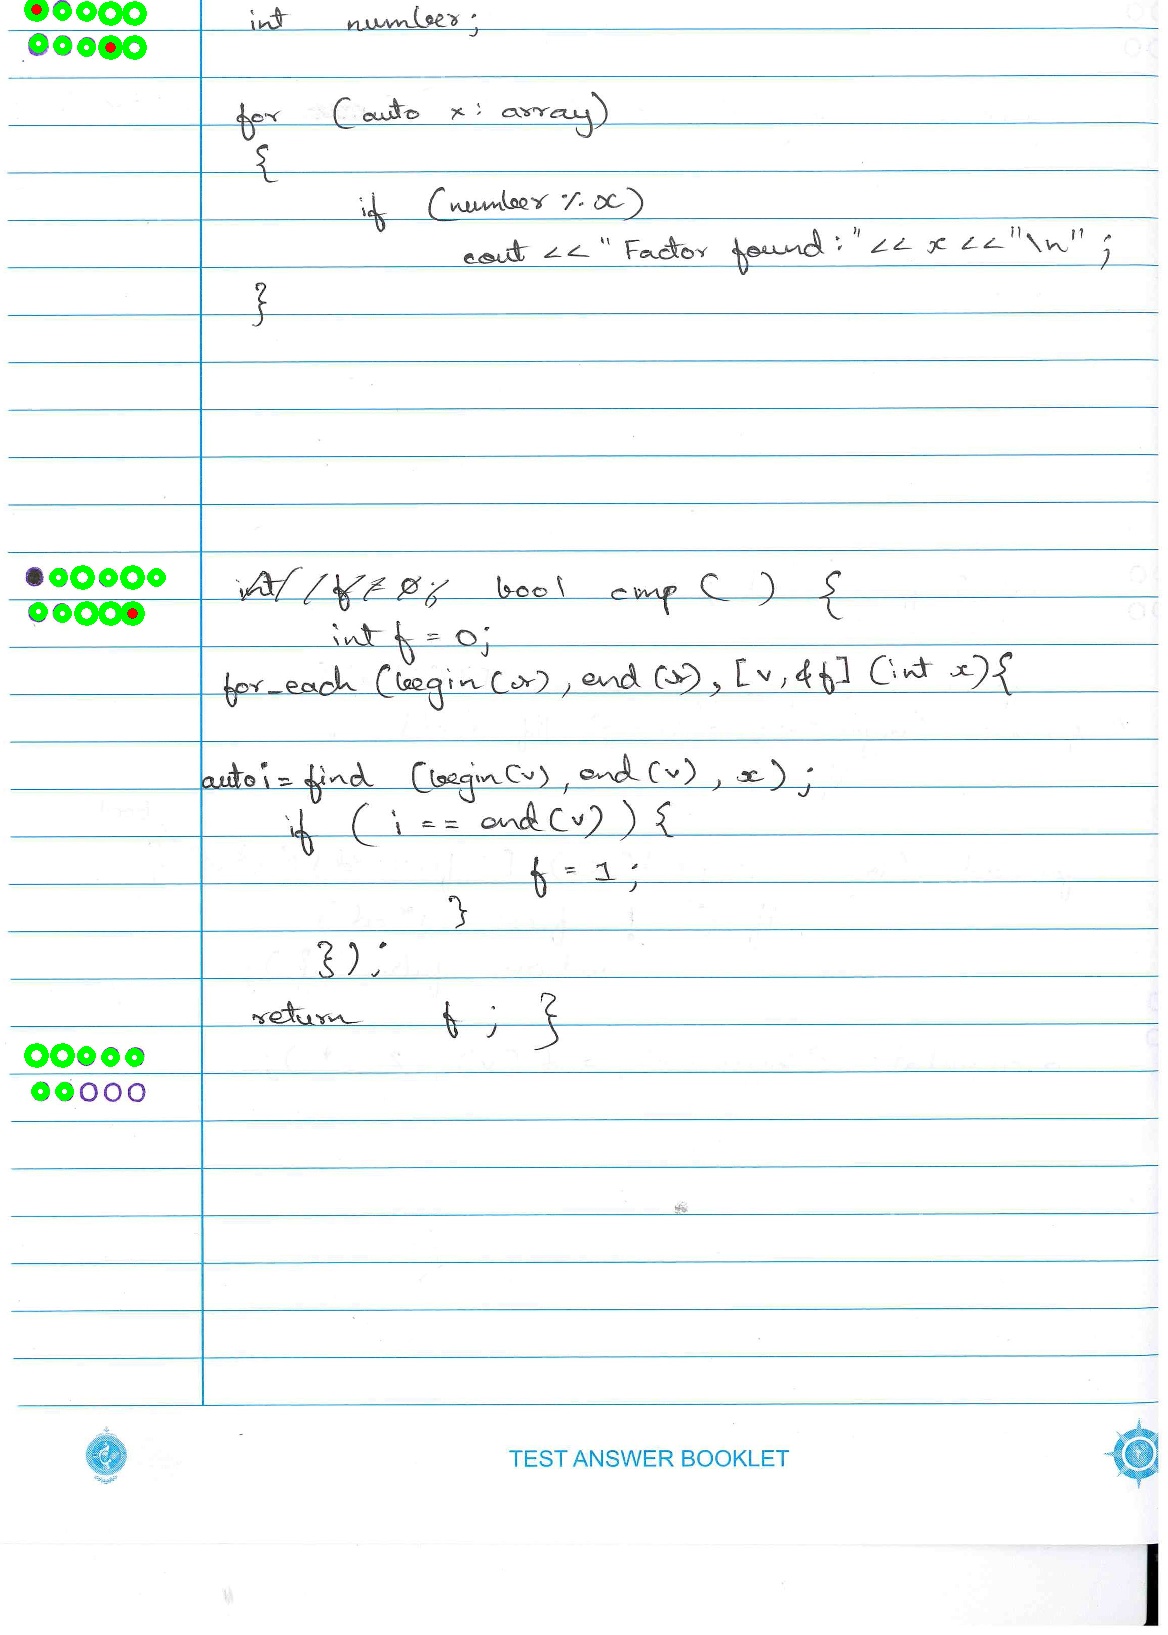 int number;
for (auto x: array)
{
if (number % x)
cout << "Factor found:" << x << "\n" ;
}
bool cmp ( ) {
int f = 0;
for_each (begin(r), end (r), [v, &f] (int x) {
auto i = find (begin(v), end(v), x) ;
if ( i == end(v) ) {
f = 1 ;
}
});
return f ; }
TEST ANSWER BOOKLET